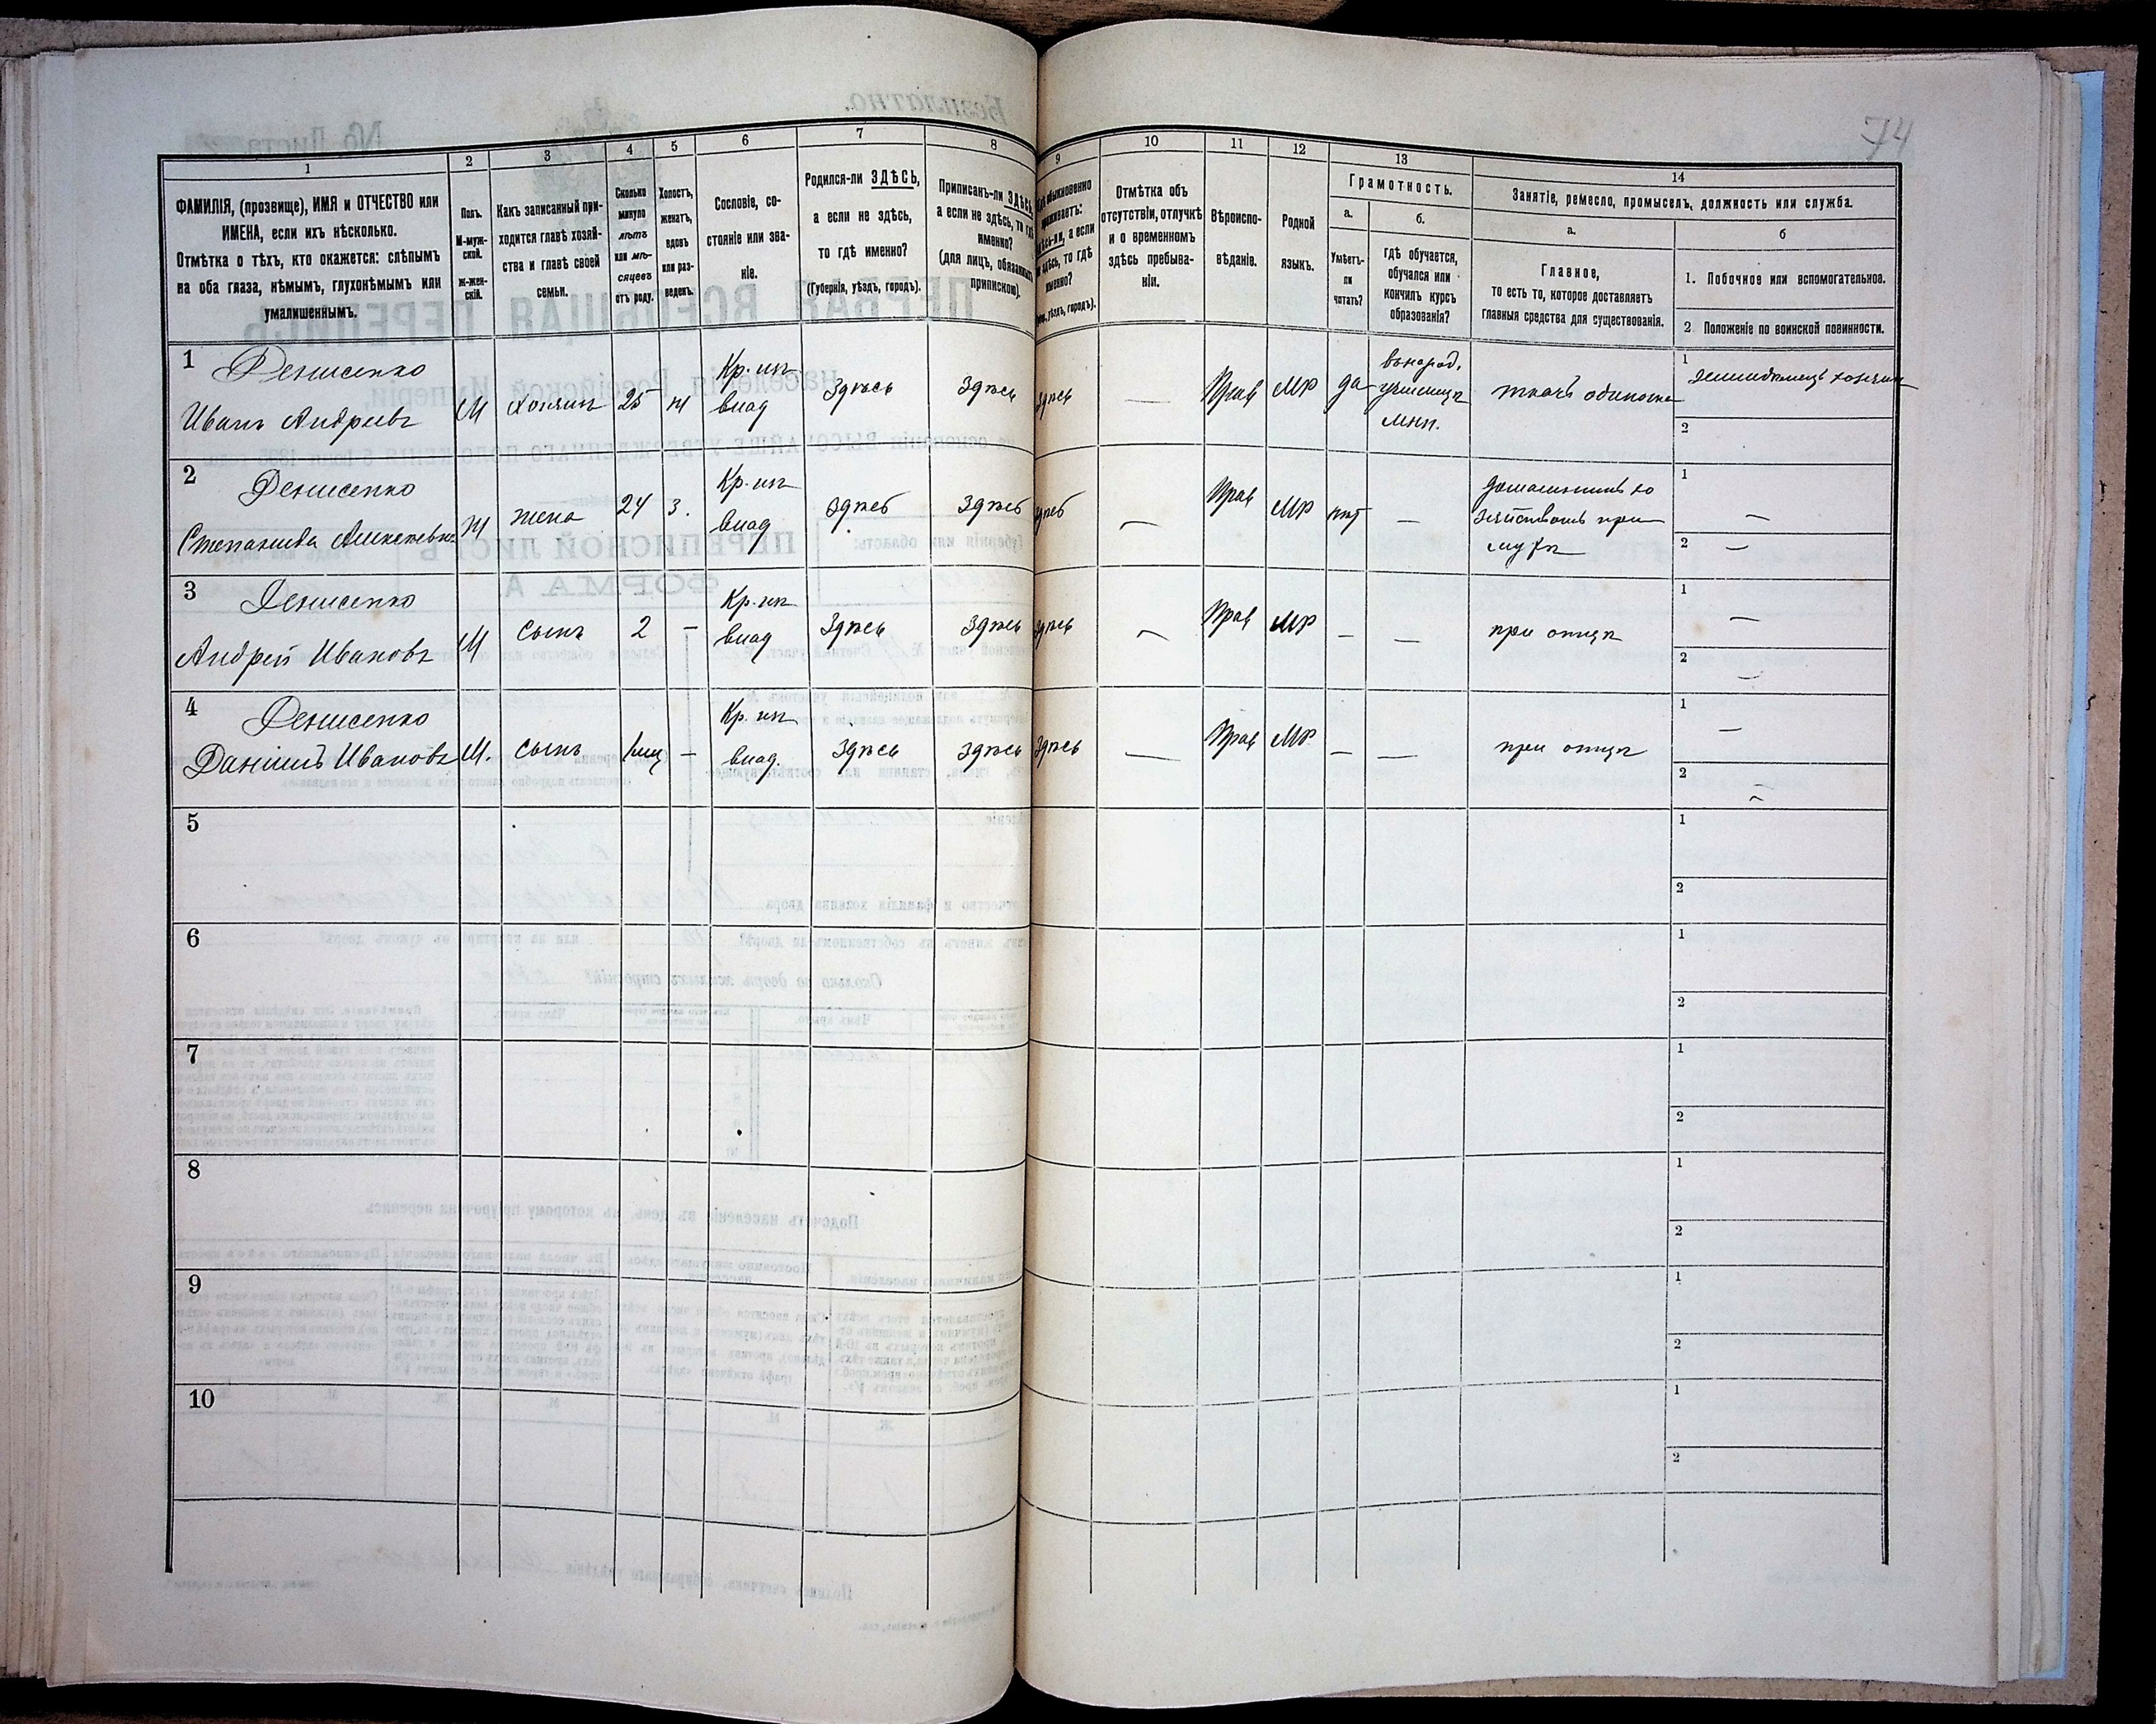 74
1
2
3
4
5
6
7
8
9
10
11
12
13
14
ФАМИЛІЯ, (прозвище), ИМЯ и ОТЧЕСТВО или
ИМЕНА, если ихъ нѣсколько.
Отмѣтка о тѣхъ, кто окажется: слѣпымъ
на оба глаза, нѣмымъ, глухонѣмымъ или
умалишеннымъ.
Полъ.
М-муж-
ской.
Ж-жен-
скій.
Какъ записанный при-
ходится главѣ хозяй-
ства и главѣ своей
семьи.
Сколько
минуло
лѣтъ
или мѣ-
сяцевъ
отъ роду.
Холостъ,
женатъ,
вдовъ
или раз-
веденъ.
Сословіе, со-
стояніе или зва-
ніе.
Родился-ли ЗДѢСЬ,
а если не здѣсь,
то гдѣ именно?
(Губернія, уѣздъ, городъ).
Приписанъ-ли ЗДѢСЬ,
а если не здѣсь, то гдѣ
именно?
(для лицъ, обязанныхъ
припискою).
обыкновенно
а если
здѣсь, то гдѣ
именно?
уѣздъ, городъ).
Отмѣтка объ
отсутствіи, отлучкѣ
и о временномъ
здѣсь пребыва-
ніи.
Вѣроиспо-
вѣданіе.
Родной
языкъ.
Грамотность.
а.
Умѣетъ-
ли
читать?
б.
Гдѣ обучается,
обучался или
кончилъ курсъ
образованія?
Занятіе, ремесло, промыселъ, должность или служба.
а.
Главное,
то есть то, которое доставляетъ
главныя средства для существованія.
б
1. Побочное или вспомогательное.
2 Положеніе по воинской повинности.
1 Денисенко
Иванъ Андреевъ М хозяинъ 25 ж Кр. изъ влад Здѣсь Здѣсь Здѣсь — Прав МР да
училищѣ
мнп.
ткачъ одиночка
1
2
2 Денисенко
Степанида Алексѣевна Ж жена 24 З. Кр. изъ влад Здѣсь Здѣсь Здѣсь — Прав МР нѣт —
при
мужѣ
1 —
2 —
3 Денисенко
Андрей Ивановъ М сынъ 2 – Кр. изъ влад Здѣсь Здѣсь Здѣсь — Прав МР – — при отцѣ
1 —
2 —
4 Денисенко
Даніилъ Ивановъ М. сынъ 1 мц – Кр. изъ влад. Здѣсь Здѣсь Здѣсь — Прав МР – — при отцѣ
1 —
2 —
5
1
2
6
1
2
7
1
2
8
1
2
9
1
2
10
1
2